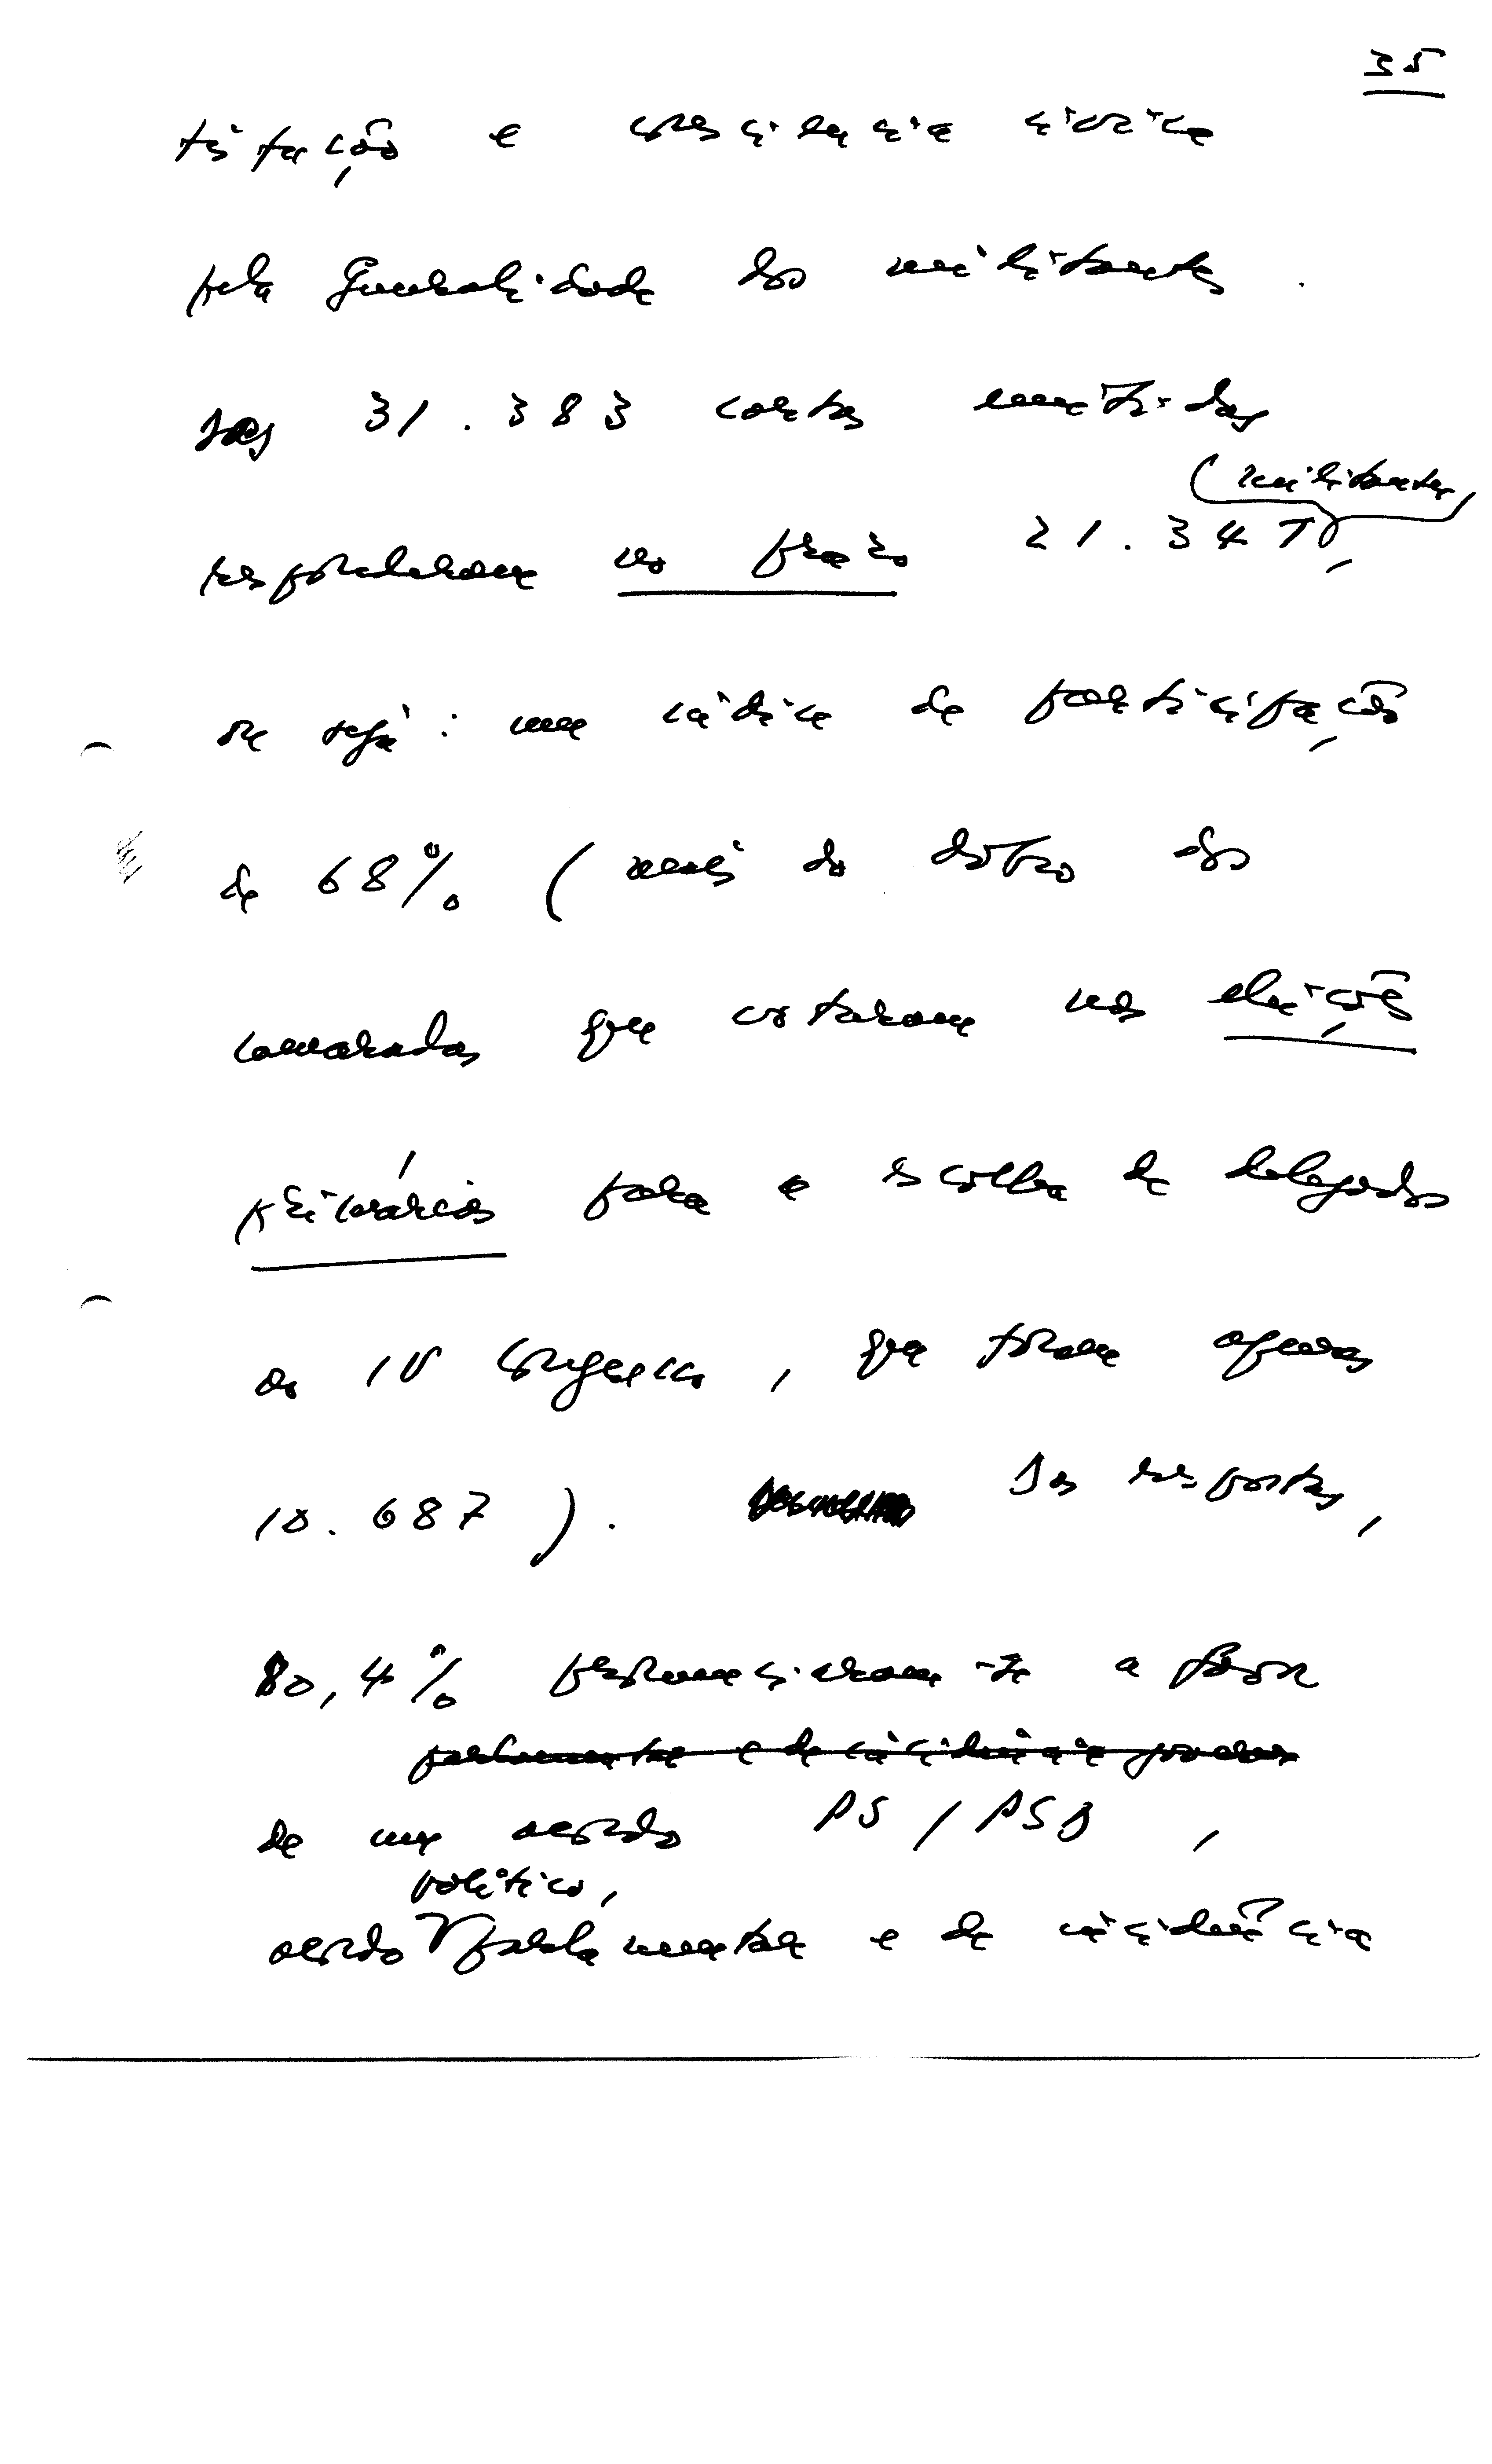 35
titação e consciência cívica
pela generalidade dos militantes.
Das 31.383 cartas emitidas
(militantes)
responderam no prazo 21.347,
ou seja: um índice de participação
de 68% (mais do dobro dos
camaradas que votaram nas eleições
primárias para a escolha de delegados
ao IV Congresso, que foram apenas
10.687). Das respostas,
80,4% pronunciaram-se a favor
parlamentar e de incidência governa
de um acordo PS/PSD,
político,
acordo parlamentar e de incidência